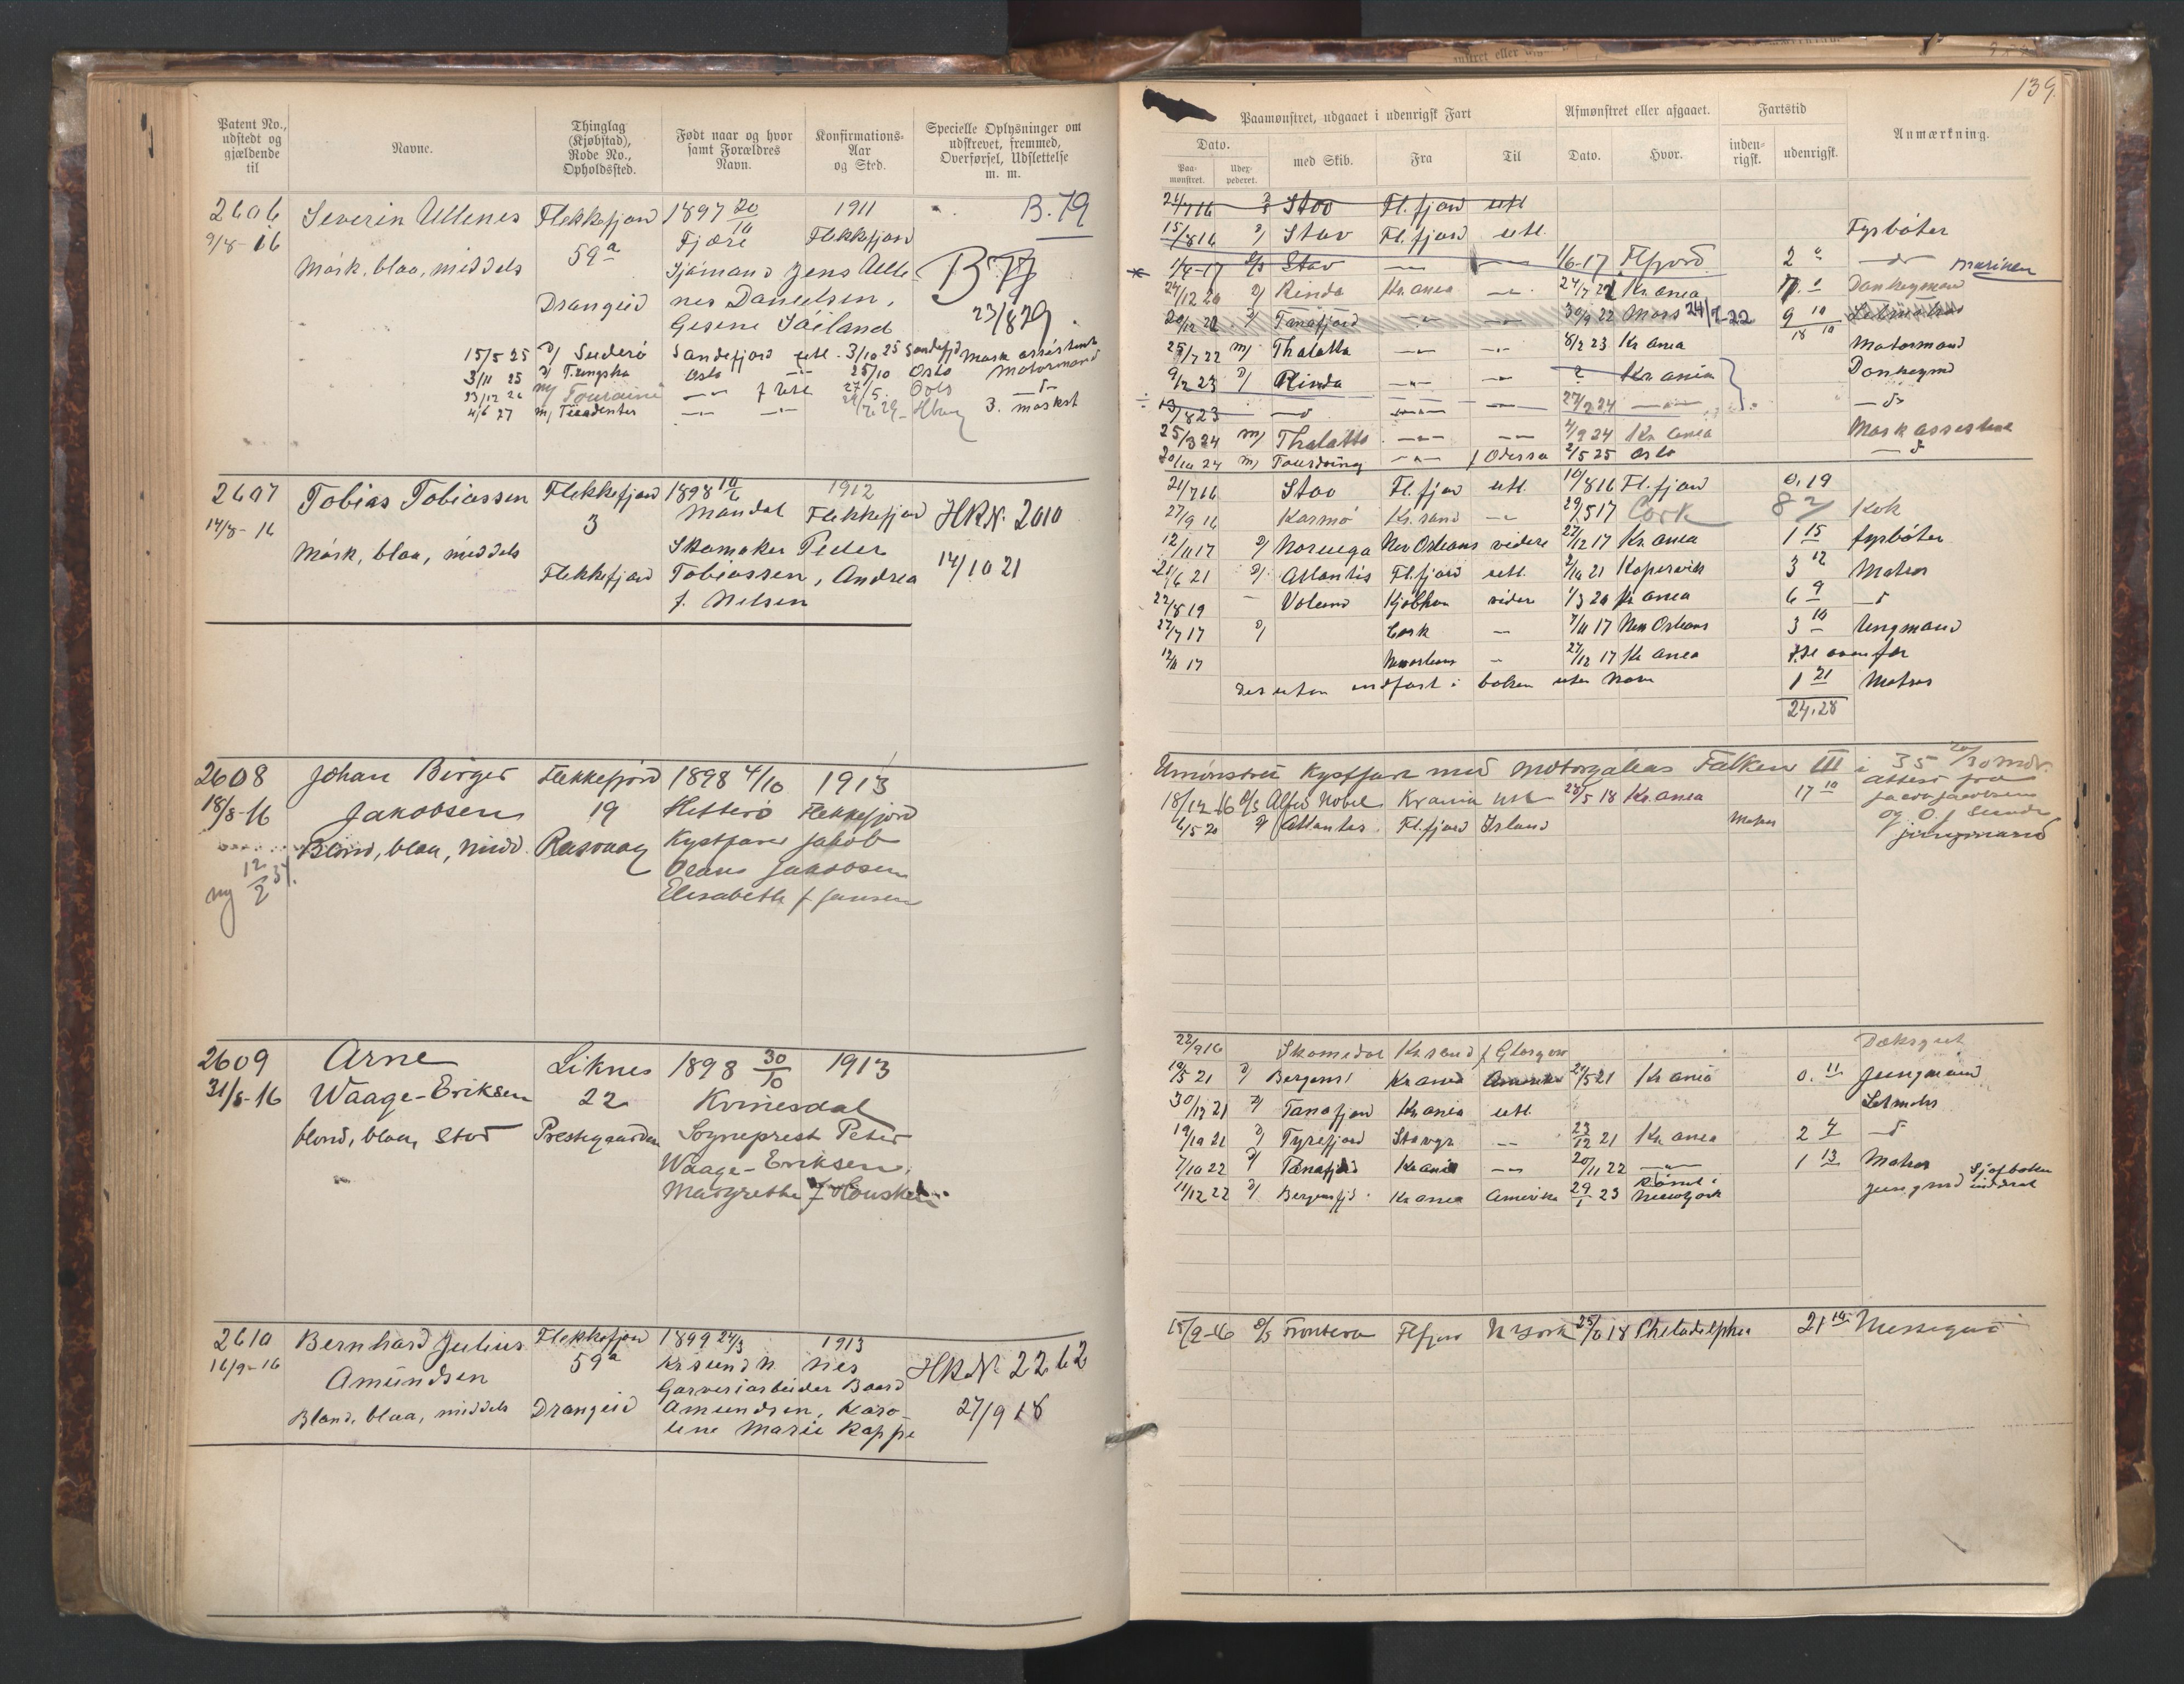 139.
Patent No., udstedt og gjældende til
Navne.
Thinglag (Kjøbstad), Rode No., Opholdssted.
Født naar og hvor samt Forældres Navn.
Konfirmations-Aar og Sted.
Specielle Oplysninger om udskrevet, fremmed, Overførsel, Udslettelse m. m.
Paamønstret, udgaaet i udenrigsk Fart
Afmønstret eller afgaaet.
Fartstid
Anmærkning.
Dato.
Paa-mønstret.
Udex-pederet.
med Skib.
Fra
Til
Dato.
Hvor.
inden-rigsk.
udenrigsk.
2606 Severin Ullenes Flekkefjord 1897 20/10 1911 B.79
9/8-16 59a Fjære Flekkefjord
Mørk, blaa, middels Sjømand Jens Ulle- B 79
Drangeid nes Danielsen, 23/8 29.
Gesine Såiland
15/5 25 D/ Suderø Sandefjord utl. 3/10 25 Sandefjd Mask assistent
3/11 25 D/ Tungsha Oslo 25/10 Oslo Motormand
23/12 26 Touraine
4/6 27 m/ Tiradentes 3. maskst
24/7 16 D/ Stav Fl.fjord utl
15/8 16 D/ Stav Fl.fjord utl. Fyrbøter
1/4-17 D/S Stav 1/6-17 Flfjord 2 Marinen
24/12 20 D/ Rinda Kr.ania 24/7 22 Kr.ania Donkeymand
20/12 22 D/ Tanafjord 30/9 22 Moss 24/7-22 9 10
18 10
25/7 22 m/ Thalatta 8/2 23 Kr ania Motormand
9/12 23 D/ Rinda ? Kr ania Donkeymd
13/8 23 27/2 24
25/3 24 m/ Thalatta 4/9 24 Kr ania Mask assistent
20/10 24 m/ f Odessa 2/5 25 Oslo
2607 Tobias Tobiassen Flekkefjord 1898 10/6 1912
14/8-16 3 Mandal Flekkefjord HRN. 2010
Mørk, blaa, middels Skomaker Peder
Flekkefjord Tobiassen, Andrea 14/10 21
f. Nilsen
21/7 16 Stav Fl.fjord utl. 10/8 16 Fl.fjord 0.19
27/9 16 Karmø Kr.sand 29/5 17 Cork 8 2/ Kok
12/11 17 D/ Noruega New Orleans videre 27/12 17 Kr.ania 1 15 fyrbøter
21/6 21 D/ Atlantis Fl.fjord utl. 2/10 21 Kopervik 3 12 Matros
22/8 19 Volund Kjøbhvn videre 1/3 20 Kr ania 6 9
22/7 17 D/ Cork 7/11 17 New Orleans 3 10 Ungmand
12/11 17 Neworleans 27/12 17 Kr ania
Desuten indført i boken uten Navn 1 21 Matros
24.28
2608 Johan Birger Flekkefjord 1898 4/10 1913
18/8-16 Jakobsen 19 Hitterø Flekkefjord
Blond, blaa, midd. Rasvaag Kystfarer Jakob
ny 12/2 37. Jakobsen
Elisabeth f Jansen
Umønstret Kystfart med Motorgaleas Falken III i 35 20/30 mdr.
attest fra
18/12-16 D/S Alfred Nobel Krania utl 28/5 18 Kr.ania 17 10 Jacob Jacobsen
og O. J. Sunde
6/5 20 D/ Atlantis Fl.fjord Island Matros jungmand
2609 Arne Liknes 1898 30/10 1913
31/8-16 Waage-Eriksen 22 Kvinesdal
blond, blaa, stor Prestegaarden Sogneprest Peter
Waage-Eriksen,
Margrethe f Houskeu
22/9 16 Skomedal Kr.sand f Glasgow Dæksgut
19/5 21 D/ Bergensf Kr ania Amerika 29/5 21 Kr ania 0. 11 Jungmand
30/12 21 D/ Tanafjord Kr ania utl. Letmatr
19/10 21 D/ Tyrefjord Stavgr 23/12 21 Kr ania 2 4
7/10 22 D/ Tanafjord Kr ania 20/11 22 1 13 Matros
11/12 22 D/ Bergensfjd. Kr ania Amerika 29/1 23 Rømt i Newyork Jungmd Sjøfboken inddrat
2610 Bernhard Julius Flekkefjord 1899 24/3 1913
16/9-16 Amundsen 59a Kr.sund N. Nes HRN. 2262
Garveriarbeider Baard
Blond, blaa, middels Drangeid Amundsen, Karo- 27/9 18
line Marie Rappe
15/9-16 D/S Frontera Flfjord N York 25/6 18 Philadelphia 21 10 Messegut